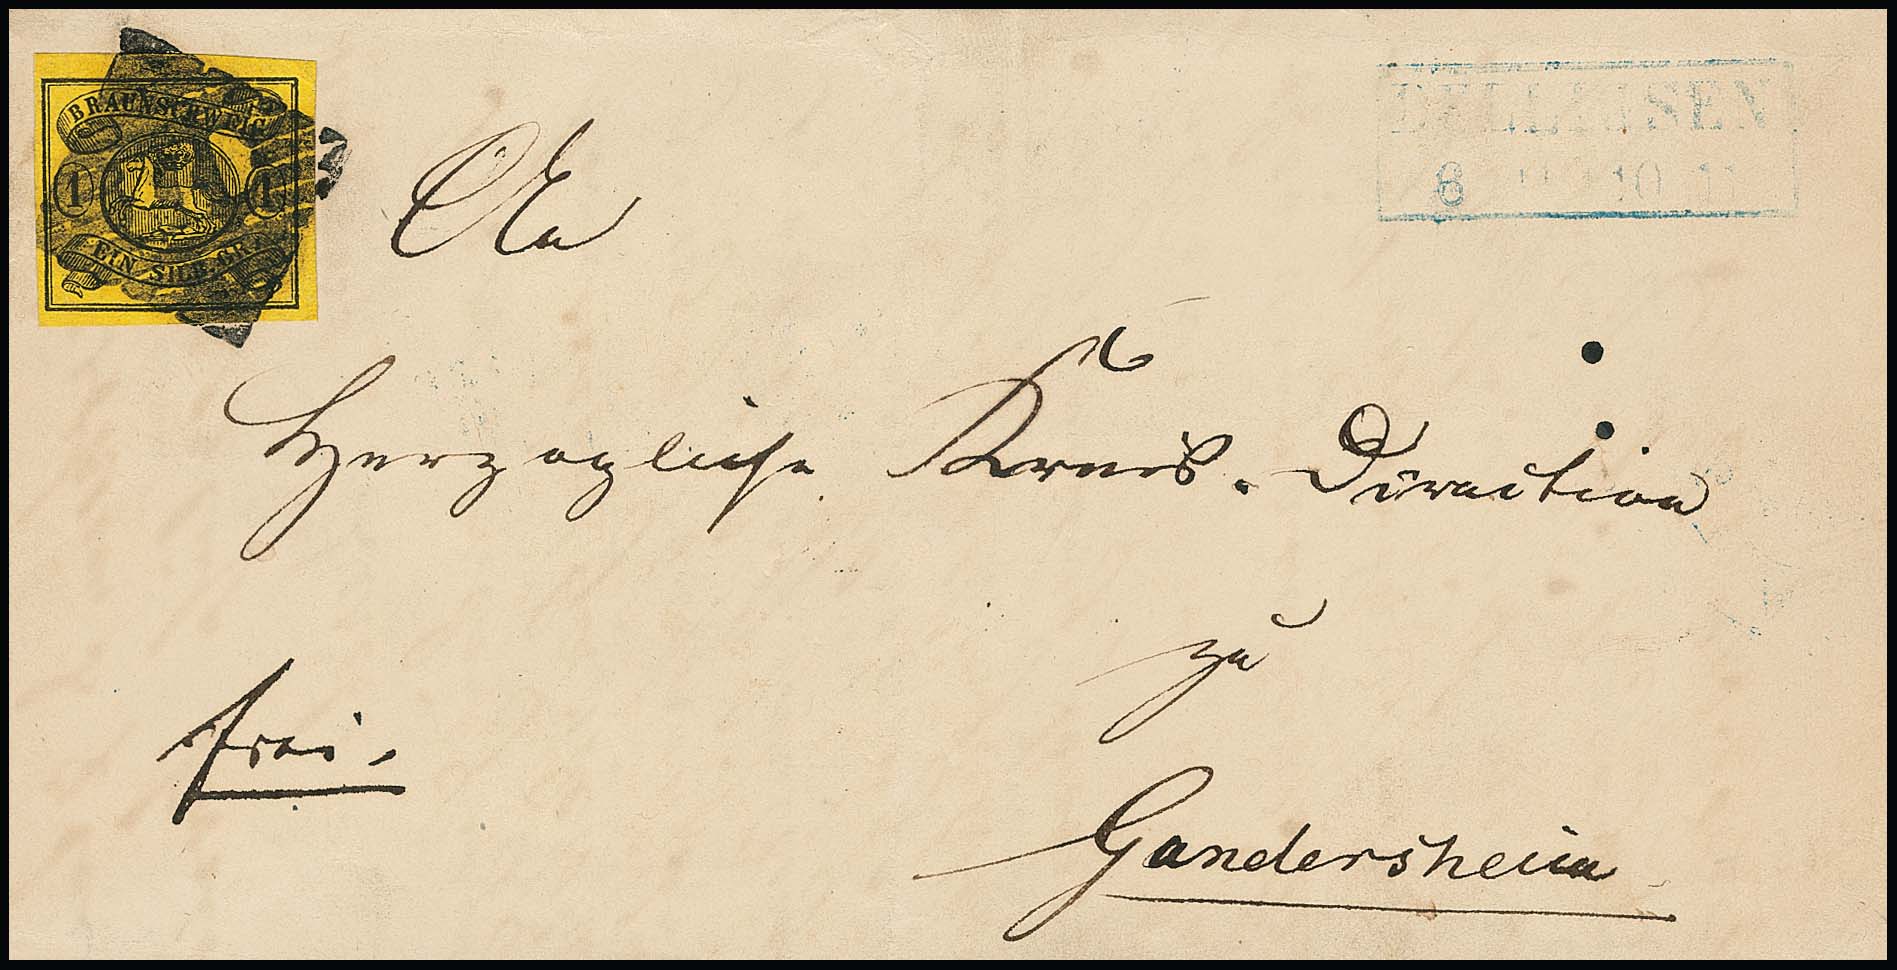 BRAUNSCHWEIG
1 1
EIN SILB.GR.
An
Herzogliche Kreis-Direction
zu
Gandersheim
frei.